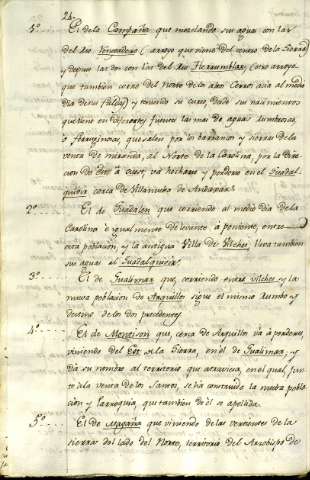 24
1º El de la Campaña que mezclando sus aguas con las
del Rio (arroyo que viene del centro de la Sierra)
y despues las dos con las del Rio Herrumblar, (otro arroyo
que tambien corre del Norte de los altos Cerros acia al medio
dia de sus faldas) y teniendo su curso, desde sus nacimientos
que tiene en diferentes fuentes las mas de aguas
ó ferruginosas, que salen por los barrancos y sierras de la
venta de miranda, al Norte de la Carolina, por la direc
cion de Est á Ouest, và á echarse y perderse en el Guadal
quivir cerca de Villanueba de Andujar.
2º El de Guadalen que corriendo al medio dia de la
Carolina é igualmente de levante à poniente, entre
esta poblacion, y la antigua Villa de Vilches lleva tambien
sus aguas al Guadalquivir.
3º El de Guarizas que, corriendo entre Vilches y la
nueva poblacion de Arquillos sigue el mismo rumbo y
destino de los dos precedentes
4º El de Montizon que, cerca de Arquillos và à perderse,
viniendo del Est de la Sierra, en el de y
dà su nombre al territorio que atraviesa, en el qual, jun
to à la venta de los Santos, se ha construido la nuestra pobla
cion y Parroquia, que tambien de él se apellida.
5º El de Magaña que viniendo de las vertientes de la
sierra del lado del Norte, territorio del Arzobispo de